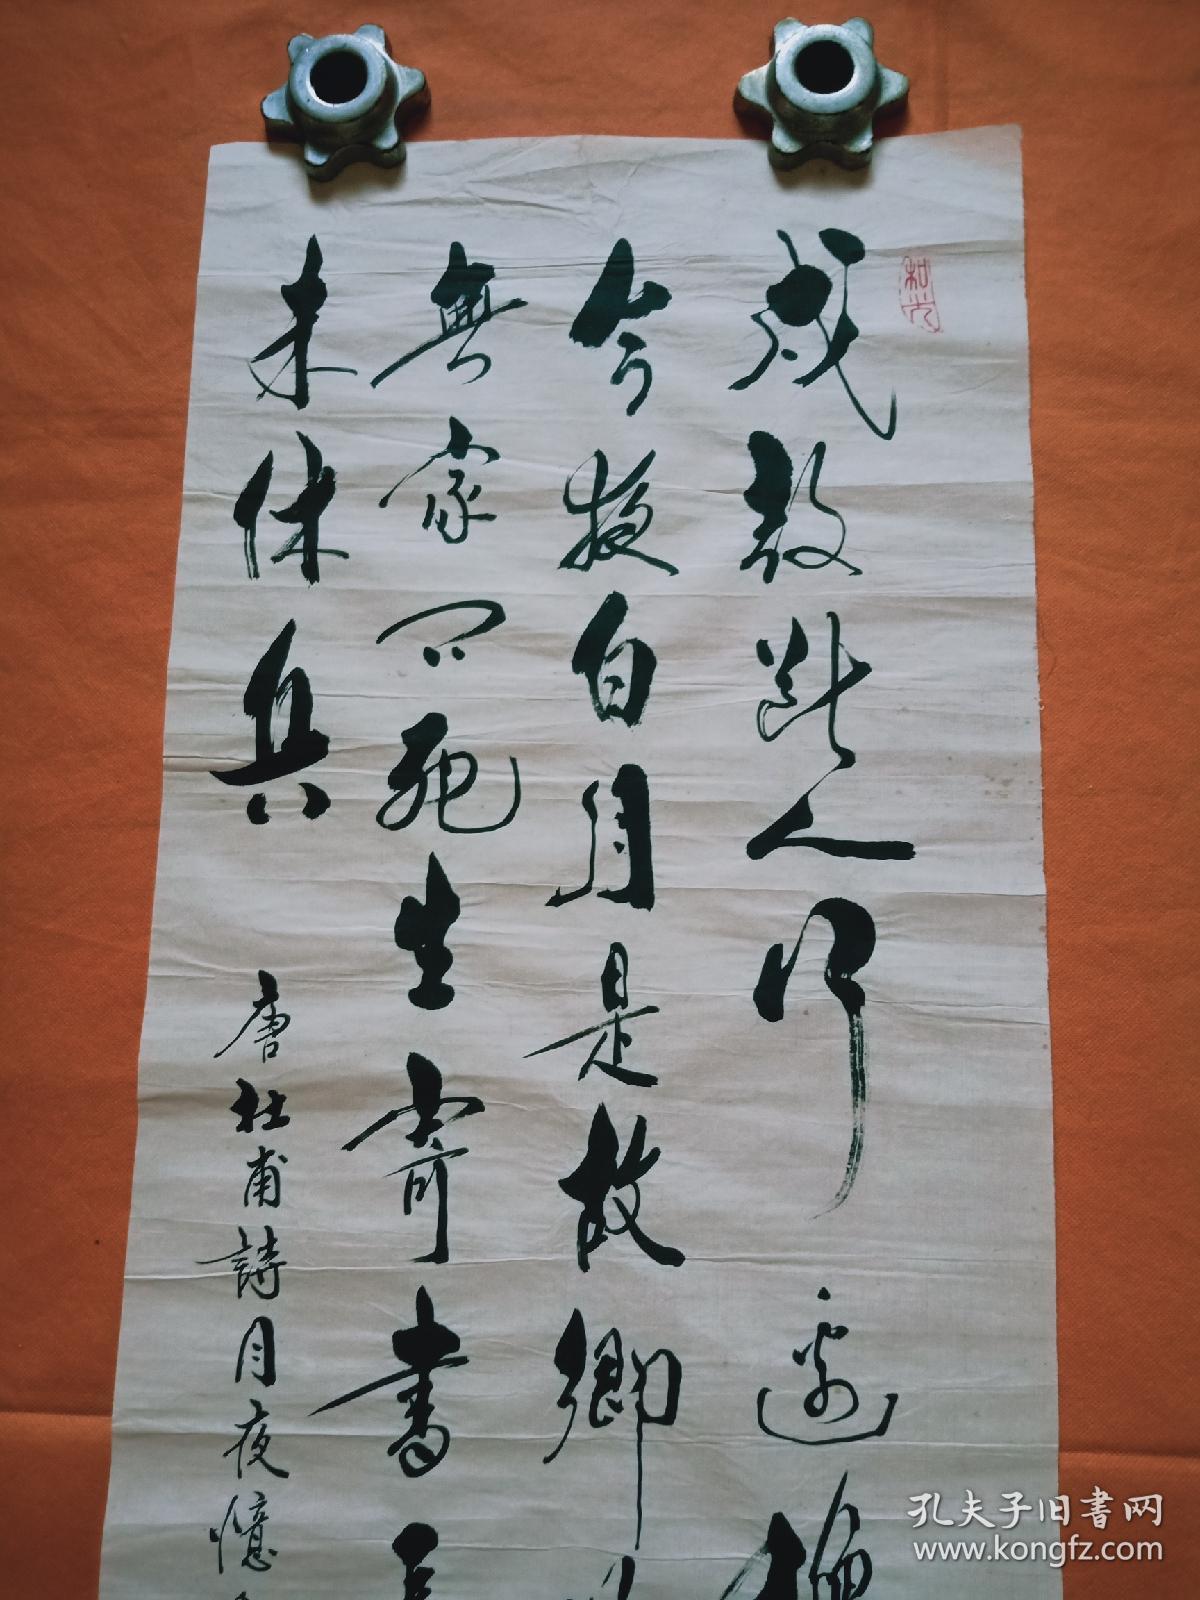 和光
戍鼓斷人行邊
今夜白月是故鄉
無家問死生寄書
未休兵
唐杜甫詩月夜憶
孔夫子旧书网
www.kongfz.com